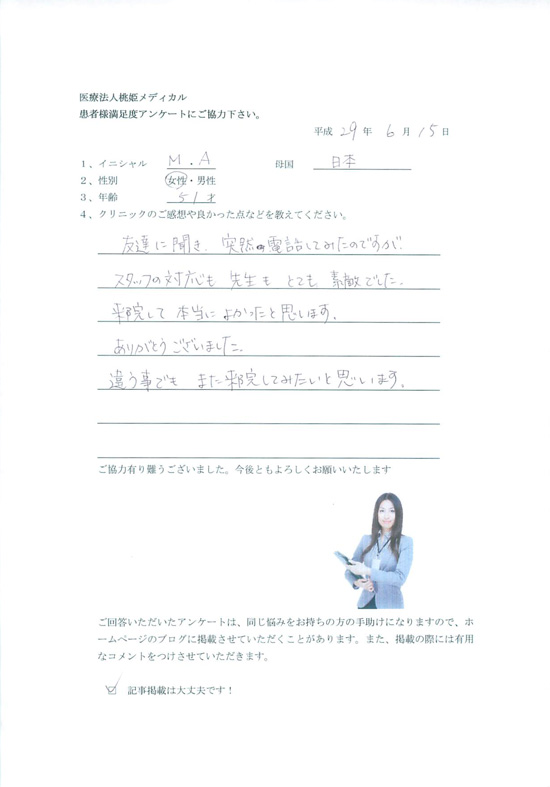 医療法人桃姫メディカル
患者様満足度アンケートにご協力下さい。
平成 29 年 6 月 15 日
1、イニシャル M.A 母国 日本
2、性別 女性・男性
3、年齢 51才
4、クリニックのご感想や良かった点などを教えてください。
友達に聞き、突然の電話してみたのですが、
スタッフの対応も 先生も とても 素敵でした。
来院して 本当に よかったと思います。
ありがとうございました。
違う事でも また来院してみたいと思います。
ご協力有り難うございました。今後ともよろしくお願いいたします
ご回答いただいたアンケートは、同じ悩みをお持ちの方の手助けになりますので、ホ
ームページのブログに掲載させていただくことがあります。また、掲載の際には有用
なコメントをつけさせていただきます。
☑ 記事掲載は大丈夫です！